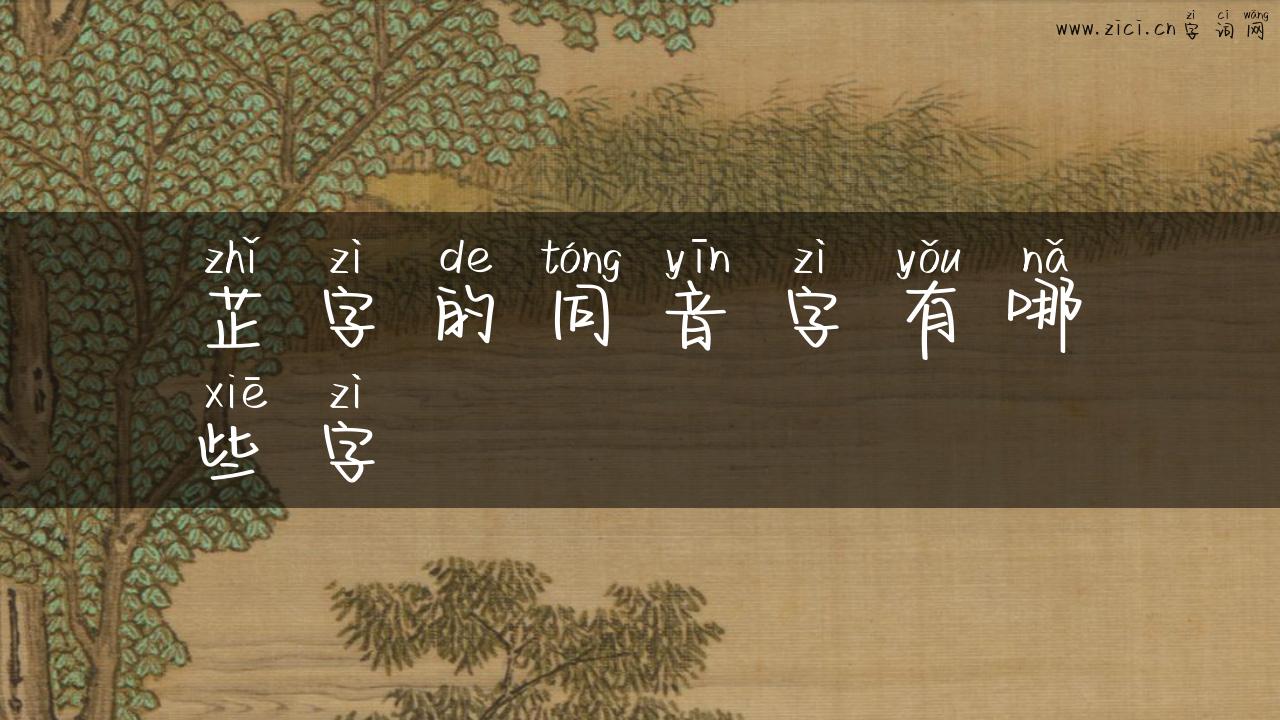 zì cí wǎng
www.zici.cn 字 词 网
zhǐ zì de tóng yīn zì yǒu nǎ
芷 字 的 同 音 字 有 哪
xiē zì
些 字